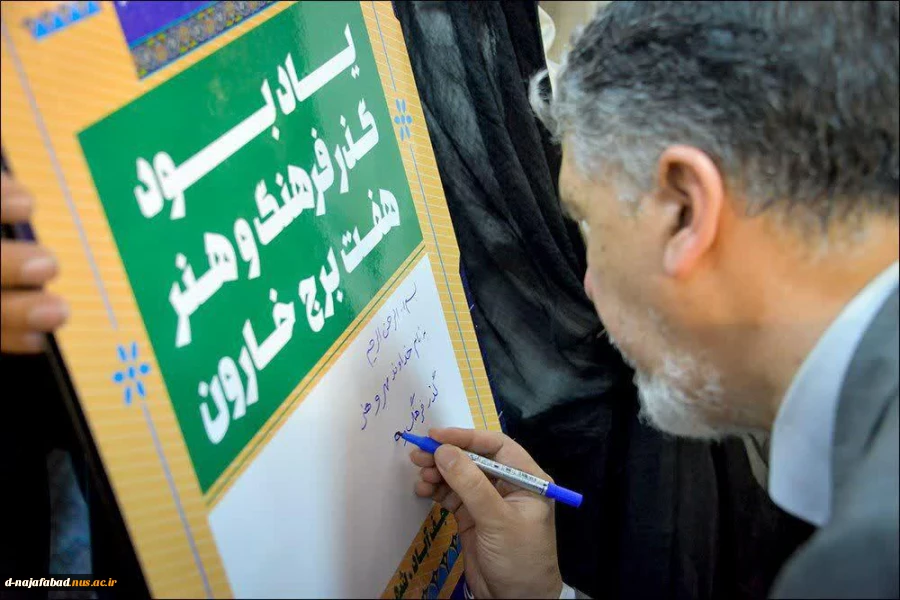 یادبود
گذر فرهنگ و هنر
هفت برج خارون
بسم الله الرحمن الرحیم
بنام خداوند مهر و هنر
گذر فرهنگ
d-najafabad.nus.ac.ir